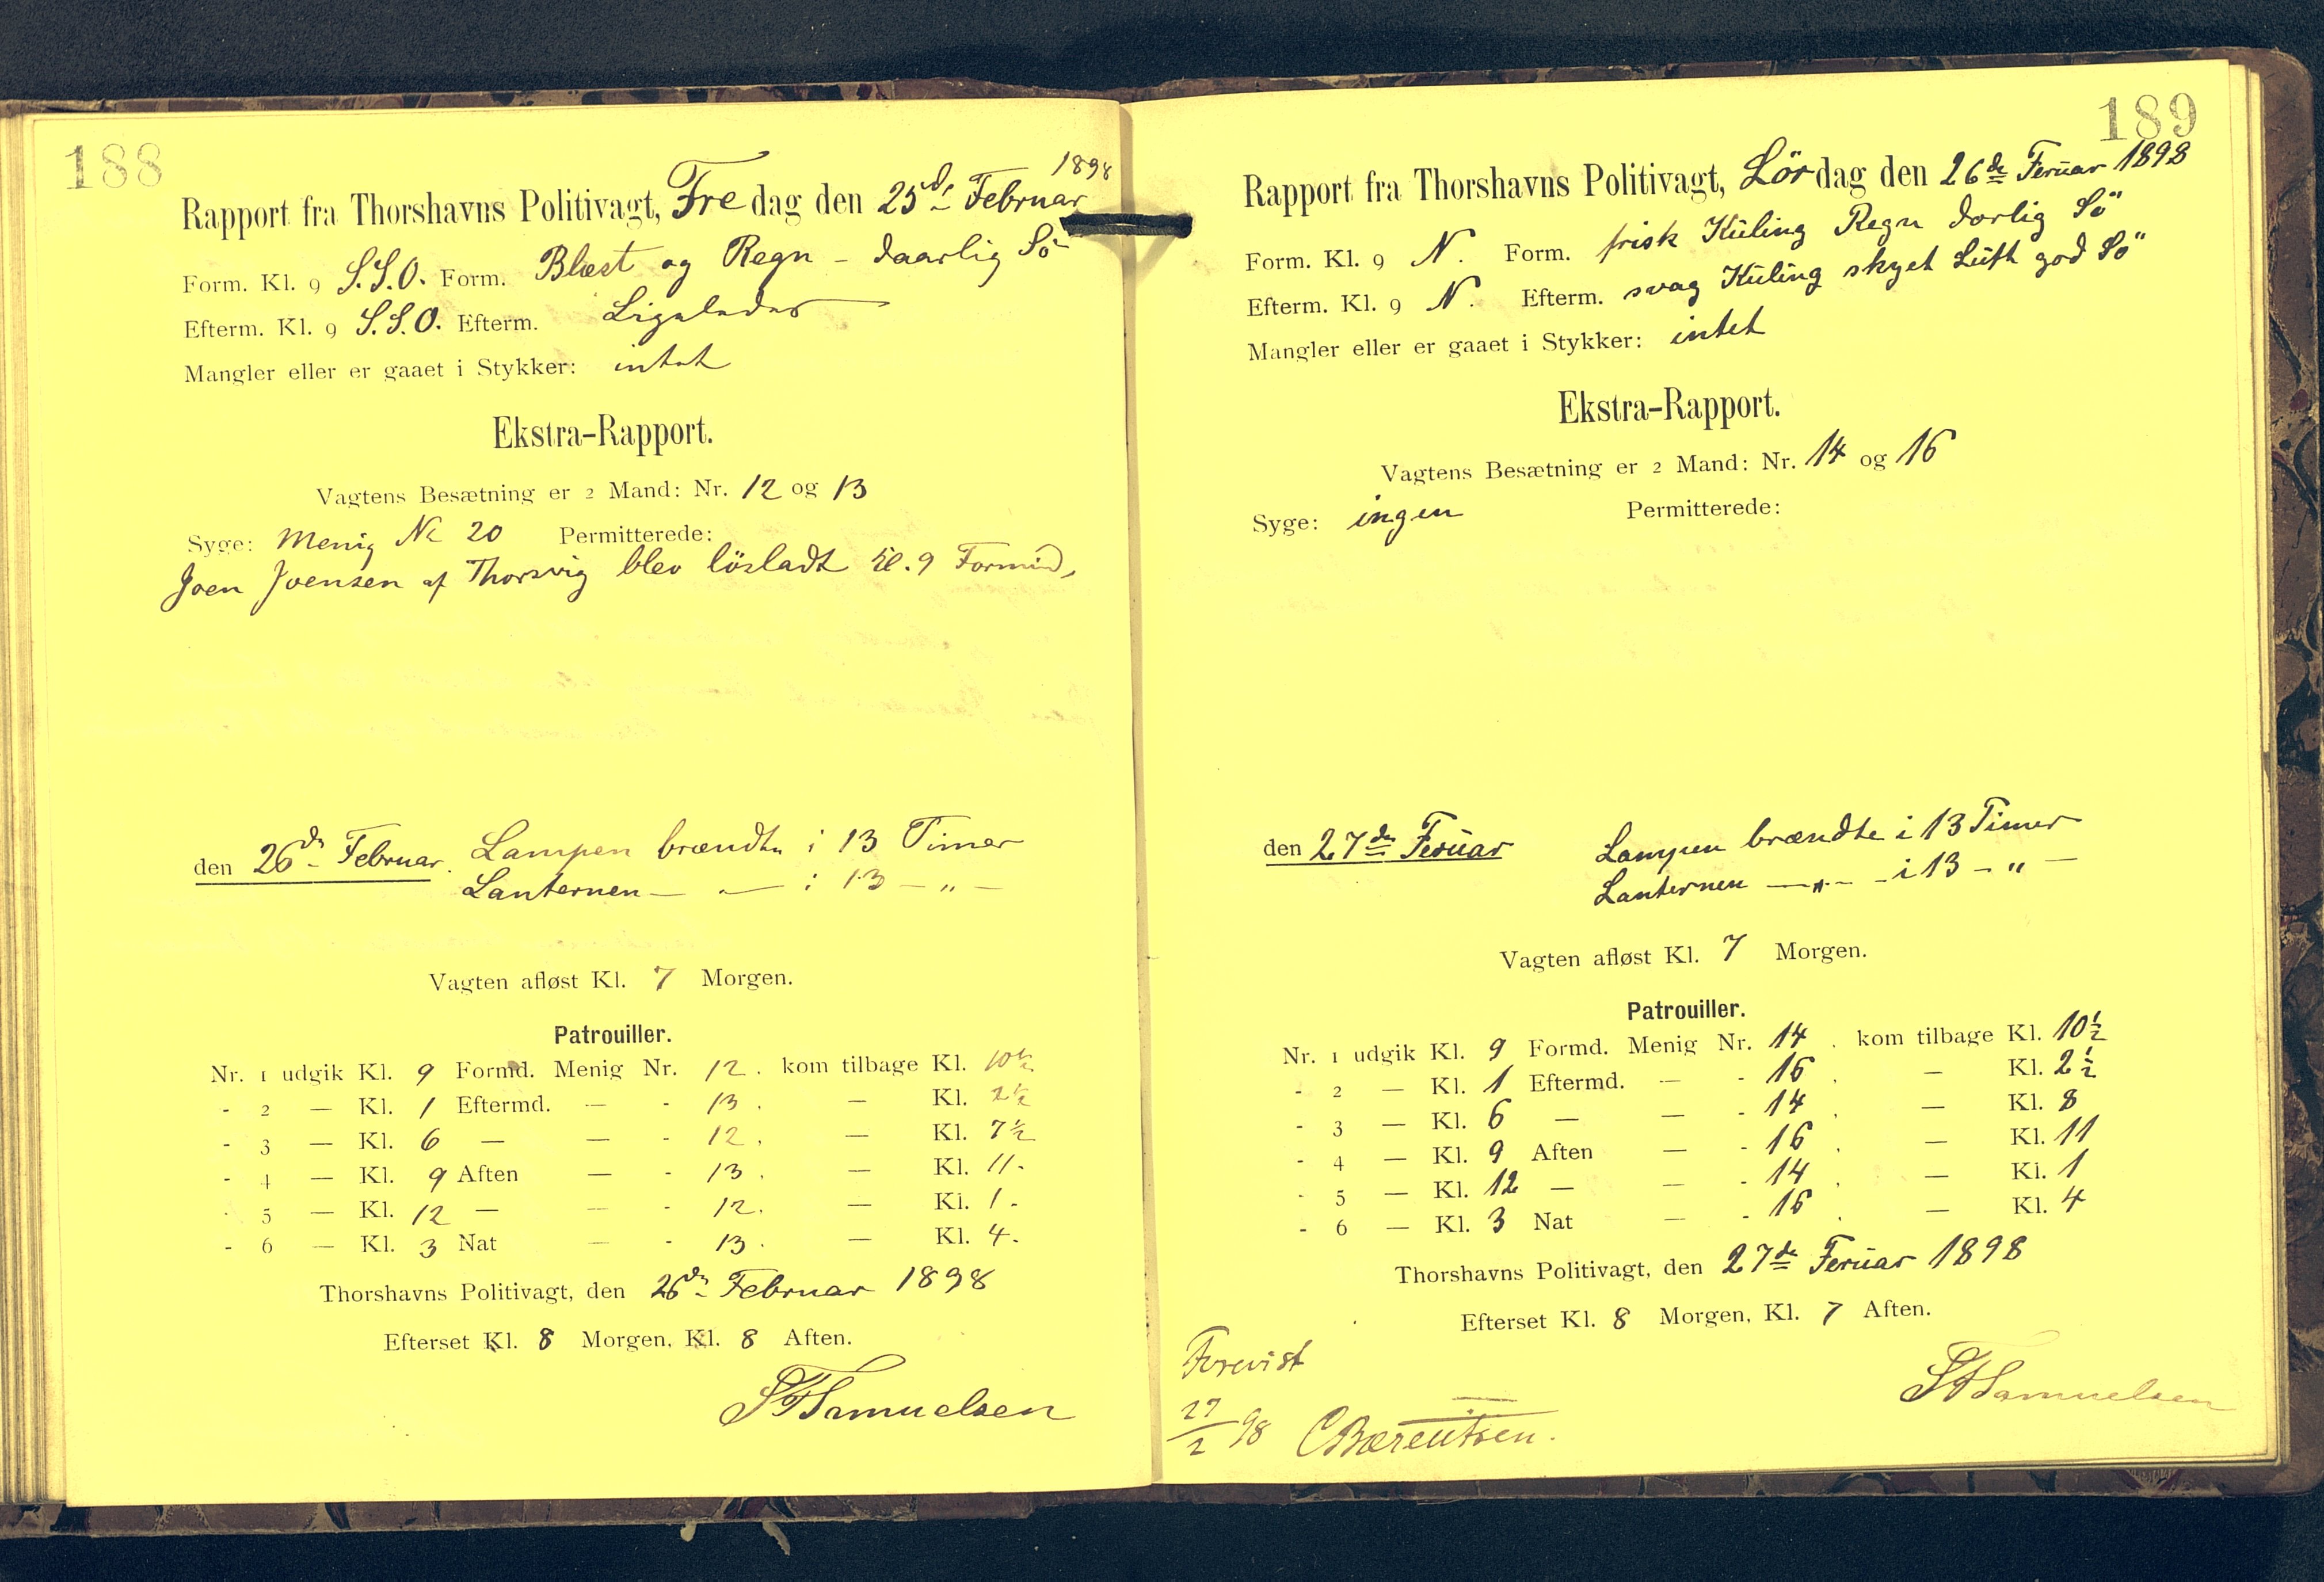 188
1898
Rapport fra Thorshavns Politivagt, Fredag den 25de Februar
Form. Kl. 9 S.S.O. Form. Blæst og Regn - daarlig Sö
Efterm. Kl. 9 S.S.O. Efterm. Ligeledes
Mangler eller er gaaet i Stykker: intet
Ekstra-Rapport.
Vagtens Besætning er 2 Mand: Nr. 12 og 13
Syge: Menig No 20 Permitterede:
Joen Joensen af Thorsvig blev lösladt Kl. 9 Formid,
den 26de Februar. Lampen brændte i 13 Timer
Lanternen — — i 13 - „ -
Vagten afløst Kl. 7 Morgen.
Patrouiller.
Nr. 1 udgik Kl. 9 Formd. Menig Nr. 12. kom tilbage Kl. 10½
- 2 — Kl. 1 Eftermd. — - 13. — Kl. 2½
- 3 — Kl. 6 — — - 12. — Kl. 7½
- 4 — Kl. 9 Aften — - 13. — Kl. 11.
- 5 — Kl. 12 — — - 12. — Kl. 1.
- 6 — Kl. 3 Nat — - 13. — Kl. 4.
Thorshavns Politivagt, den 26de Februar 1898
Efterset Kl. 8 Morgen, Kl. 8 Aften.
SFSamuelsen
189
Rapport fra Thorshavns Politivagt, Lördag den 26de Feruar 1898
Form. Kl. 9 N. Form. frisk Kuling Regn dorlig Sö
Efterm. Kl. 9 N. Efterm. svag Kuling skyet Luft god Sö
Mangler eller er gaaet i Stykker: intet
Ekstra-Rapport.
Vagtens Besætning er 2 Mand: Nr. 14 og 16
Syge: ingen Permitterede:
den 27de Feruar Lampen brændte i 13 Timer
Lanternen — „ — i 13 - „ —
Vagten afløst Kl. 7 Morgen.
Patrouiller.
Nr. 1 udgik Kl. 9 Formd. Menig Nr. 14. kom tilbage Kl. 10½
- 2 — Kl. 1 Eftermd. — - 16. — Kl. 2½
- 3 — Kl. 6 — — - 14. — Kl. 8
- 4 — Kl. 9 Aften — - 16. — Kl. 11
- 5 — Kl. 12 — — - 14. — Kl. 1
- 6 — Kl. 3 Nat — - 16. — Kl. 4
Thorshavns Politivagt, den 27de Feruar 1898
Efterset Kl. 8 Morgen, Kl. 7 Aften.
SFSamuelsen
Forevist
27/2 98 CBærentsen.